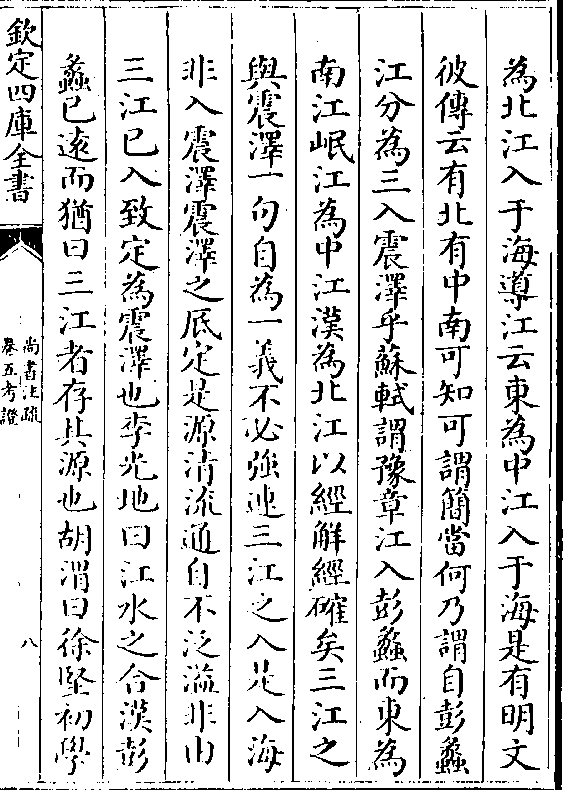 為北江入于海導江云東為中江入于海是有明文
彼傳云有北有中南可知可謂簡當何乃謂自彭蠡
江分為三入震澤乎蘇軾謂豫章江入彭蠡而東為
南江岷江為中江漢為北江以經解經確矣三江之
與震澤一句自為一義不必強連三江之入是入海
非入震澤震澤之底定是源清流通自不泛溢非由
三江已入致定為震澤也李光地曰江水之合漢彭
蠡已遠而猶曰三江者存其源也胡渭曰徐堅初學
欽定四庫全書
尚書注疏
卷五考證
八